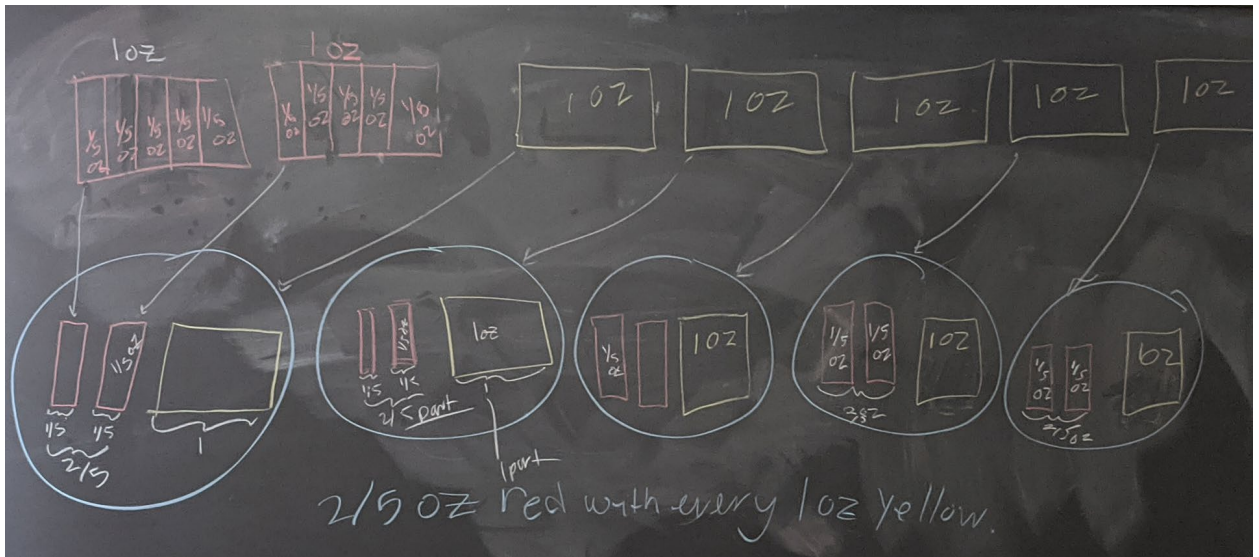 1oz 1oz
1/5 oz 1/5 oz 1/5 oz 1/5 oz 1/5 oz
1/5 oz 1/5 oz 1/5 oz 1/5 oz 1/5 oz
1 oz 1 oz 1 oz 1 oz 1 oz
1/5 oz
1/5 1/5 1
2/5
1/5 oz 1oz
1/5 1/5
2/5 part
1 part
1/5 oz 1oz
1/5 oz 1/5 oz 1oz
1/5 oz 1/5 oz
2/5 oz
2/5 oz red with every 1 oz yellow.